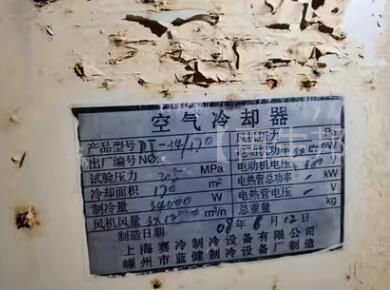 空气冷却器
产品型号 DJ-34/170 风机风压 Pa
出厂编号 NO: 电动机功率 3× W
试验压力 MPa 电动机电压 380 V
冷却面积 170 m² 电热管总功率 kW
制冷量 34000 W 电热管电压 V
风机风量 3× m³/h 总重量 kg
制造日期: 08年6月12日
上海赛冷制冷设备有限公司
嵊州市蓝健制冷设备厂制造